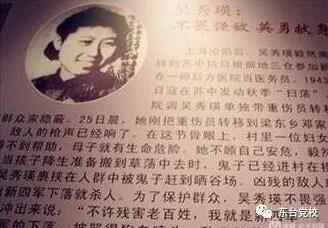 吴秀瑛：
不畏强敌 英勇献
上海沦陷后，吴秀瑛毅然
转到苏中抗日根据地三仓参加
在一师后方医院当医务员。1943
日寇在苏中发动秋季“扫荡”
院调吴秀瑛单独带重伤员转
群众家隐蔽。25日晨，她刚把重伤员转移到梁东乡邓家
敌人的枪声已经响了。在这节骨眼上，村里一位妇
得不到帮助，母子就有生命危险。她不顾自己安危，毅
当孩子降生准备搬到草荡中去时，鬼子已经进村在
吴秀瑛裹挟在人群中被鬼子赶到晒谷场。凶残的敌
新四军下落就杀人。为了保护群众，吴秀瑛不畏强
冲出来说：“不许残害老百姓，我就是新
军的下落，
东台党校